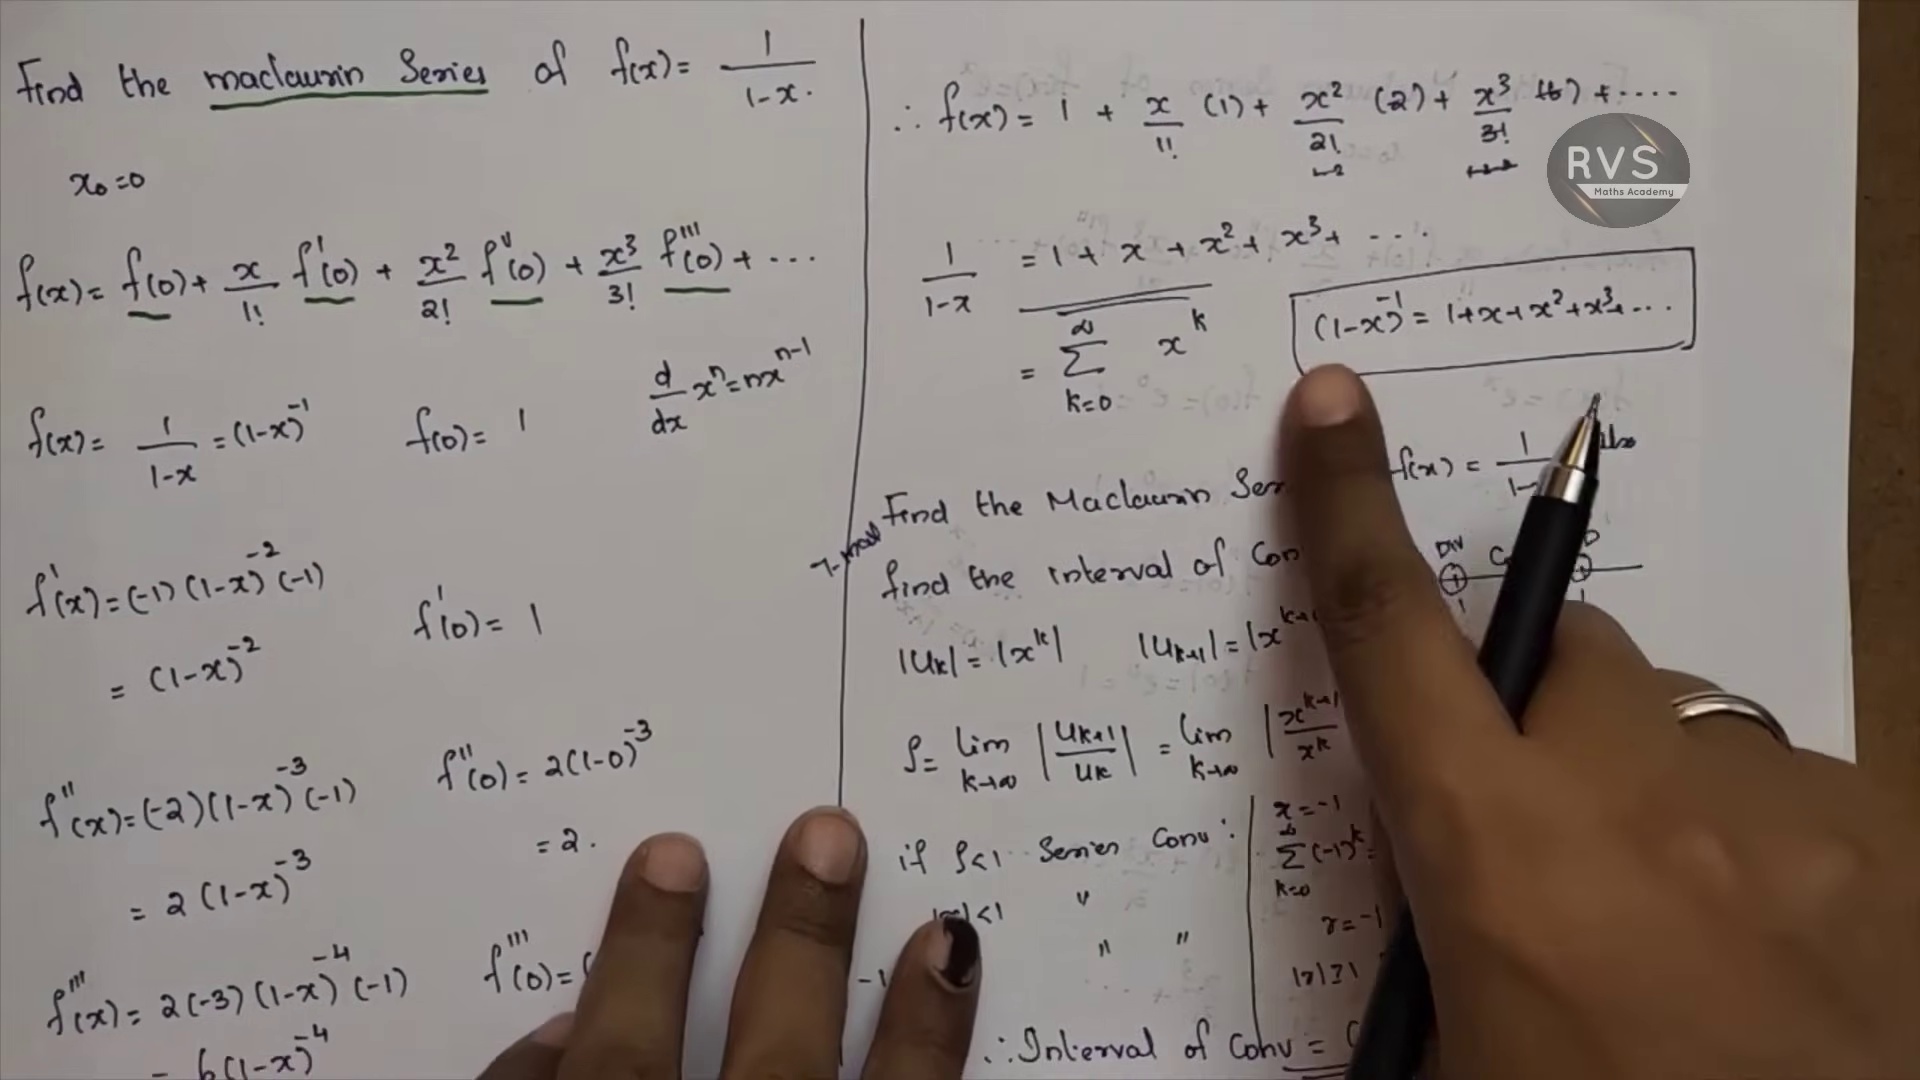 Find the maclaurin Series of f(x) = 1/(1-x).
x₀=0
f(x) = f(0) + x/1! f'(0) + x²/2! f''(0) + x³/3! f'''(0) + ...
f(x) = 1/(1-x) = (1-x)⁻¹ f(0) = 1 d/dx xⁿ = nxⁿ⁻¹
f'(x) = (-1)(1-x)⁻²(-1) f'(0) = 1
= (1-x)⁻²
f''(x) = (-2)(1-x)⁻³(-1) f''(0) = 2(1-0)⁻³
= 2(1-x)⁻³ = 2.
f'''(x) = 2(-3)(1-x)⁻⁴(-1) f'''(0) =
= 6(1-x)⁻⁴
∴ f(x) = 1 + x/1! (1) + x²/2! (2) + x³/3! (6) + ....
1/(1-x) = 1 + x + x² + x³ + ....
= ∑_{k=0}^{∞} x^k
(1-x)⁻¹ = 1+x+x²+x³+...
Find the Maclaurin f(x) =
find the interval of
Div
|u_k| = |x^k| |u_{k+1}| =
ρ = lim_{k→∞} |u_{k+1}/u_k| = lim_{k→∞} |x^{k+1}/x^k
if ρ<1 Series Conv:
<1 "
" "
x = -1
∑_{k=0}^{∞} (-1)^k =
r = -1
|r| ≥ 1
∴ Interval of Conv =
RVS
Maths Academy